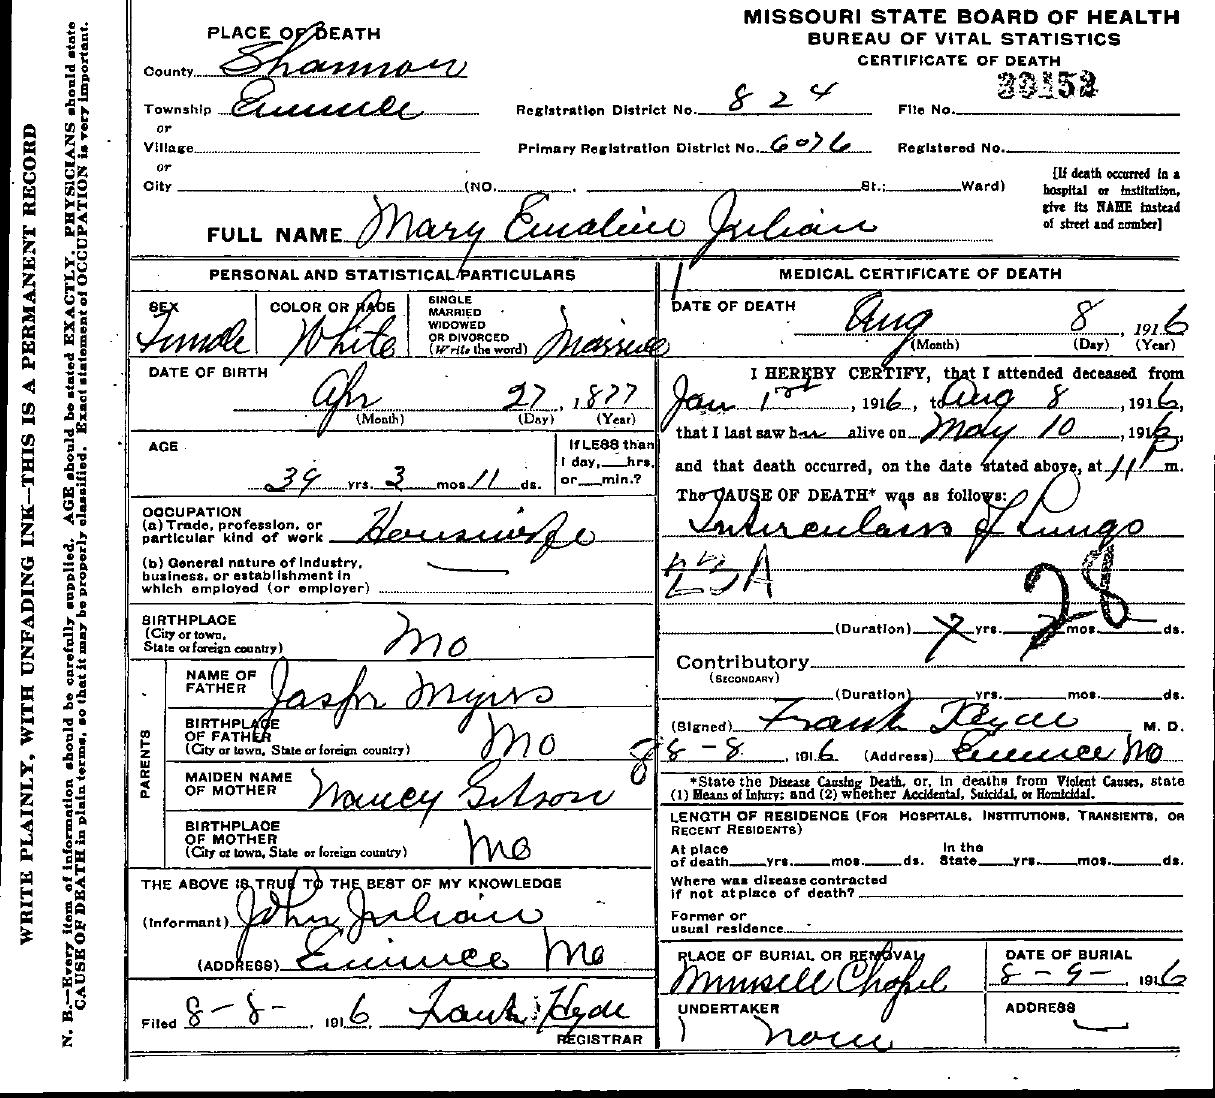 MISSOURI STATE BOARD OF HEALTH
BUREAU OF VITAL STATISTICS
CERTIFICATE OF DEATH
PLACE OF DEATH
County Shannon
Township Eminence
or
Village
or
City (NO. , St.; Ward)
Registration District No. 824 File No.
Primary Registration District No. 6076 Registered No.
[If death occurred in a
hospital or institution,
give its NAME instead
of street and number]
FULL NAME Mary Emaline Julian
PERSONAL AND STATISTICAL PARTICULARS
SEX
Female
COLOR OR RACE
White
SINGLE
MARRIED
WIDOWED
OR DIVORCED
(Write the word) Married
DATE OF BIRTH
Apr 27, 1877
(Month) (Day) (Year)
AGE
39 yrs. 3 mos. 11 ds.
If LESS than
1 day, hrs.
or min.?
OCCUPATION
(a) Trade, profession, or
particular kind of work Housewife
(b) General nature of industry,
business, or establishment in
which employed (or employer)
BIRTHPLACE
(City or town,
State or foreign country) Mo
PARENTS
NAME OF
FATHER Jasper Myers
BIRTHPLACE
OF FATHER
(City or town, State or foreign country) Mo
MAIDEN NAME
OF MOTHER Nancy Gibson
BIRTHPLACE
OF MOTHER
(City or town, State or foreign country) Mo
THE ABOVE IS TRUE TO THE BEST OF MY KNOWLEDGE
(Informant) John Julian
(ADDRESS) Eminence Mo
Filed 8-8-, 1916, Frank Hyde
REGISTRAR
MEDICAL CERTIFICATE OF DEATH
DATE OF DEATH
Aug 8, 1916
(Month) (Day) (Year)
I HEREBY CERTIFY, that I attended deceased from
Jan 1st, 1916, to Aug 8, 1916,
that I last saw her alive on May 10, 1916,
and that death occurred, on the date stated above, at 11 P m.
The CAUSE OF DEATH* was as follows:
Tuberculosis of Lungs
28
(Duration) yrs. mos. ds.
Contributory
(SECONDARY)
(Duration) yrs. mos. ds.
(Signed) Frank Hyde M. D.
8-8-, 1916 (Address) Eminence Mo
*State the Disease Causing Death, or, in deaths from Violent Causes, state
(1) Means of Injury; and (2) whether Accidental, Suicidal, or Homicidal.
LENGTH OF RESIDENCE (FOR HOSPITALS, INSTITUTIONS, TRANSIENTS, OR
RECENT RESIDENTS)
At place
of death yrs. mos. ds.
In the
State yrs. mos. ds.
Where was disease contracted
if not at place of death?
Former or
usual residence
PLACE OF BURIAL OR REMOVAL
Munsell Chapel
DATE OF BURIAL
8-9-, 1916
UNDERTAKER
None
ADDRESS
WRITE PLAINLY, WITH UNFADING INK—THIS IS A PERMANENT RECORD
N. B.—Every item of information should be carefully supplied. AGE should be stated EXACTLY. PHYSICIANS should state
CAUSE OF DEATH in plain terms, so that it may be properly classified. Exact statement of OCCUPATION is very important.